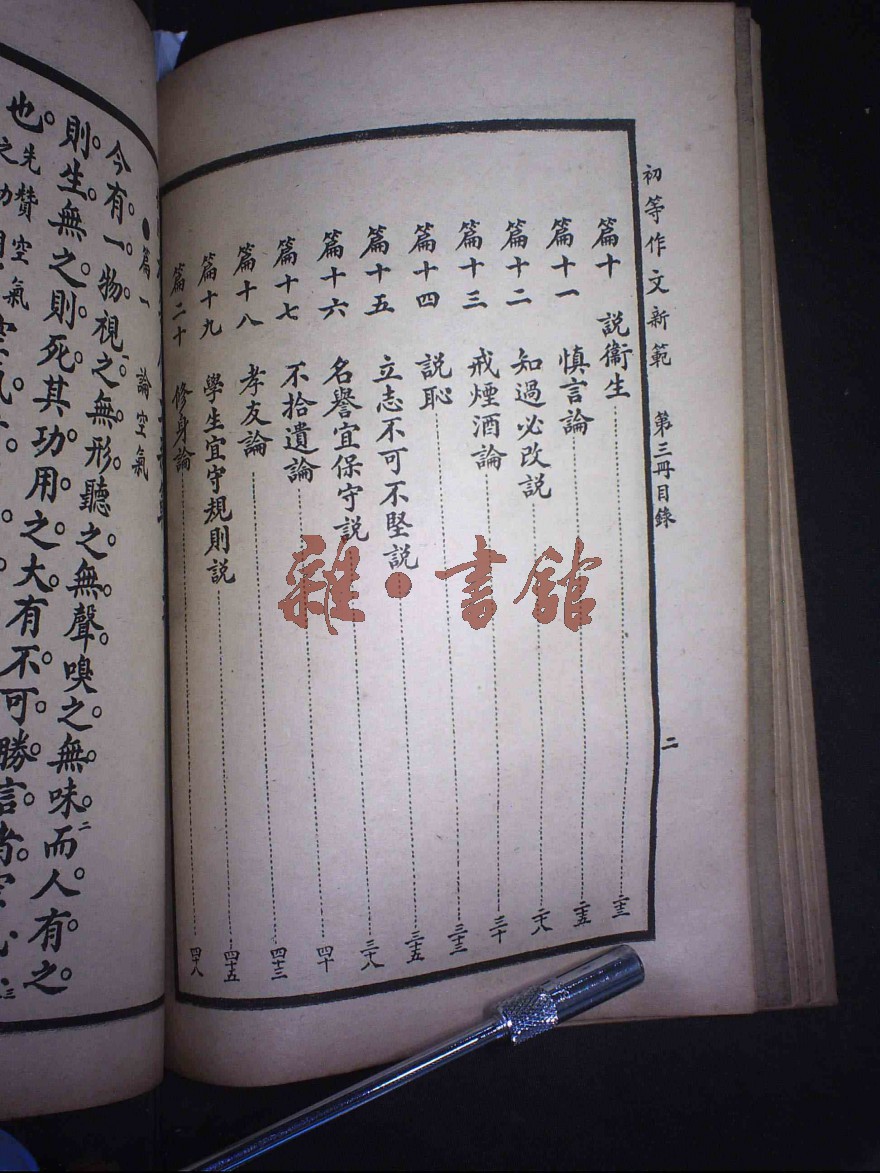 初等作文新範 第三冊目錄 二
篇十 説衞生 二十三
篇十一 慎言論 二十五
篇十二 知過必改説 二十八
篇十三 戒煙酒論 三十
篇十四 説恥 三十三
篇十五 立志不可不堅説 三十五
篇十六 名譽宜保守説 三十八
篇十七 不拾遺論 四十
篇十八 孝友論 四十三
篇十九 學生宜守規則説 四十五
篇二十 修身論 四十八
雜·書館
●篇一 論空氣
今有。一物視之。無形。聽之。無聲。嗅之。無味。而人有之。
則生。無之。則死。其功用之大。有不可勝言
也。先贊空氣